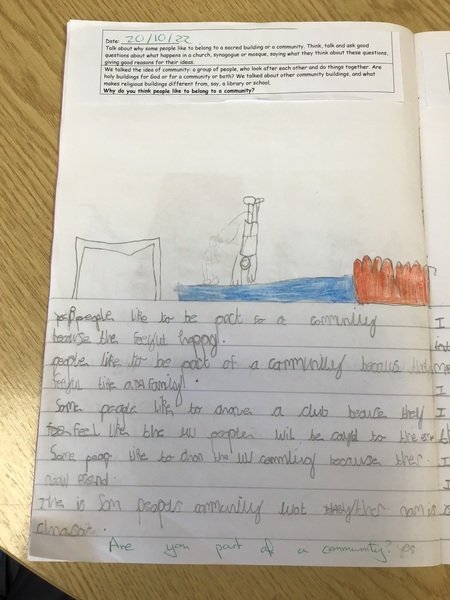 Date: 20/10/22
Talk about why some people like to belong to a sacred building or a community. Think, talk and ask good
questions about what happens in a church, synagogue or mosque, saying what they think about these questions,
giving good reasons for their ideas.
We talked the idea of community: a group of people, who look after each other and do things together. Are
holy buildings for God or for a community or both? We talked about other community buildings, and what
makes religious buildings different from, say, a library or school.
Why do you think people like to belong to a community?
people like to be part so a community
because the feelfut happy.
people like to be part of a community becaus
feelful like a family!
Some people like to a club becaus they
feel like the peoples will be to the
Some like to the because ther
The is Som people community ther nam is
Are you part of a community? yes